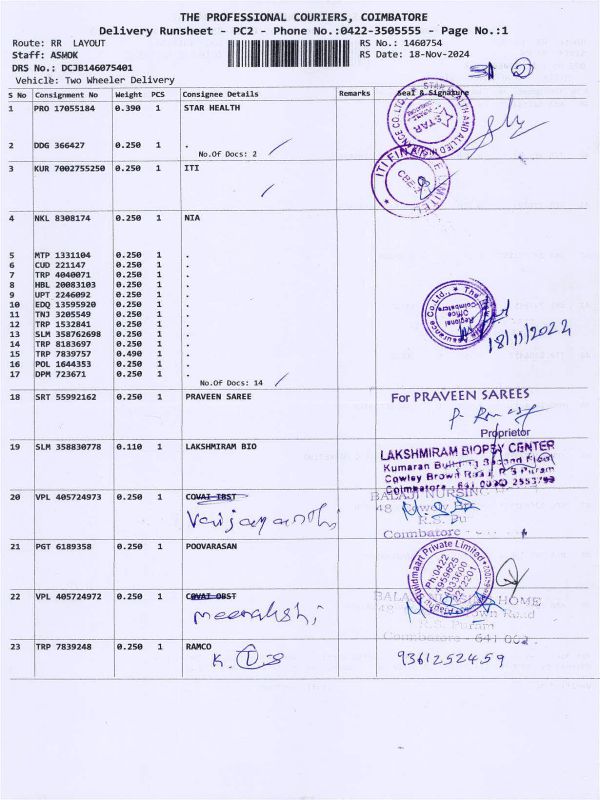 THE PROFESSIONAL COURIERS, COIMBATORE
Delivery Runsheet - PC2 - Phone No.:0422-3505555 - Page No.:1
Route: RR LAYOUT
RS No.: 1460754
Staff: ASMOK
RS Date: 18-Nov-2024
DRS No.: DCJB146075401
Vehicle: Two Wheeler Delivery
S No Consignment No Weight PCS Consignee Details Remarks Seal & Signature
1 PRO 17055184 0.390 1 STAR HEALTH
STAR
2 DDG 366427 0.250 1 .
No.Of Docs: 2
3 KUR 7002755250 0.250 1 ITI
ITI
4 NKL 8308174 0.250 1 NIA
5 MTP 1331104 0.250 1 .
6 CUD 221147 0.250 1 .
7 TRP 4040071 0.250 1 .
8 HBL 20083103 0.250 1 .
9 UPT 2246092 0.250 1 .
10 EDQ 13595920 0.250 1 .
11 TNJ 3205549 0.250 1 .
12 TRP 1532841 0.250 1 .
13 SLM 358762698 0.250 1 .
14 TRP 8183697 0.250 1 .
15 TRP 7839757 0.490 1 .
16 POL 1644353 0.250 1 .
17 DPM 723671 0.250 1 .
No.Of Docs: 14
Regional Office Coimbatore
18/11/2022
18 SRT 55992162 0.250 1 PRAVEEN SAREE
For PRAVEEN SAREES
Proprietor
19 SLM 358830778 0.110 1 LAKSHMIRAM BIO
LAKSHMIRAM BIOPSY CENTER
Kumaran Building Second Floor
Cowley Brown Road R S Puram
Coimbatore - 641 002
20 VPL 405724973 0.250 1 COVAI IBST
BALAJI NURSING
48
R.S. Pu
Coimbatore
21 PGT 6189358 0.250 1 POOVARASAN
Buildmaart Private Limited
22 VPL 405724972 0.250 1 COVAI OBST
Meenakshi
HOME
48
R.S. Puram
Coimbatore - 641 002.
23 TRP 7839248 0.250 1 RAMCO
9361252459